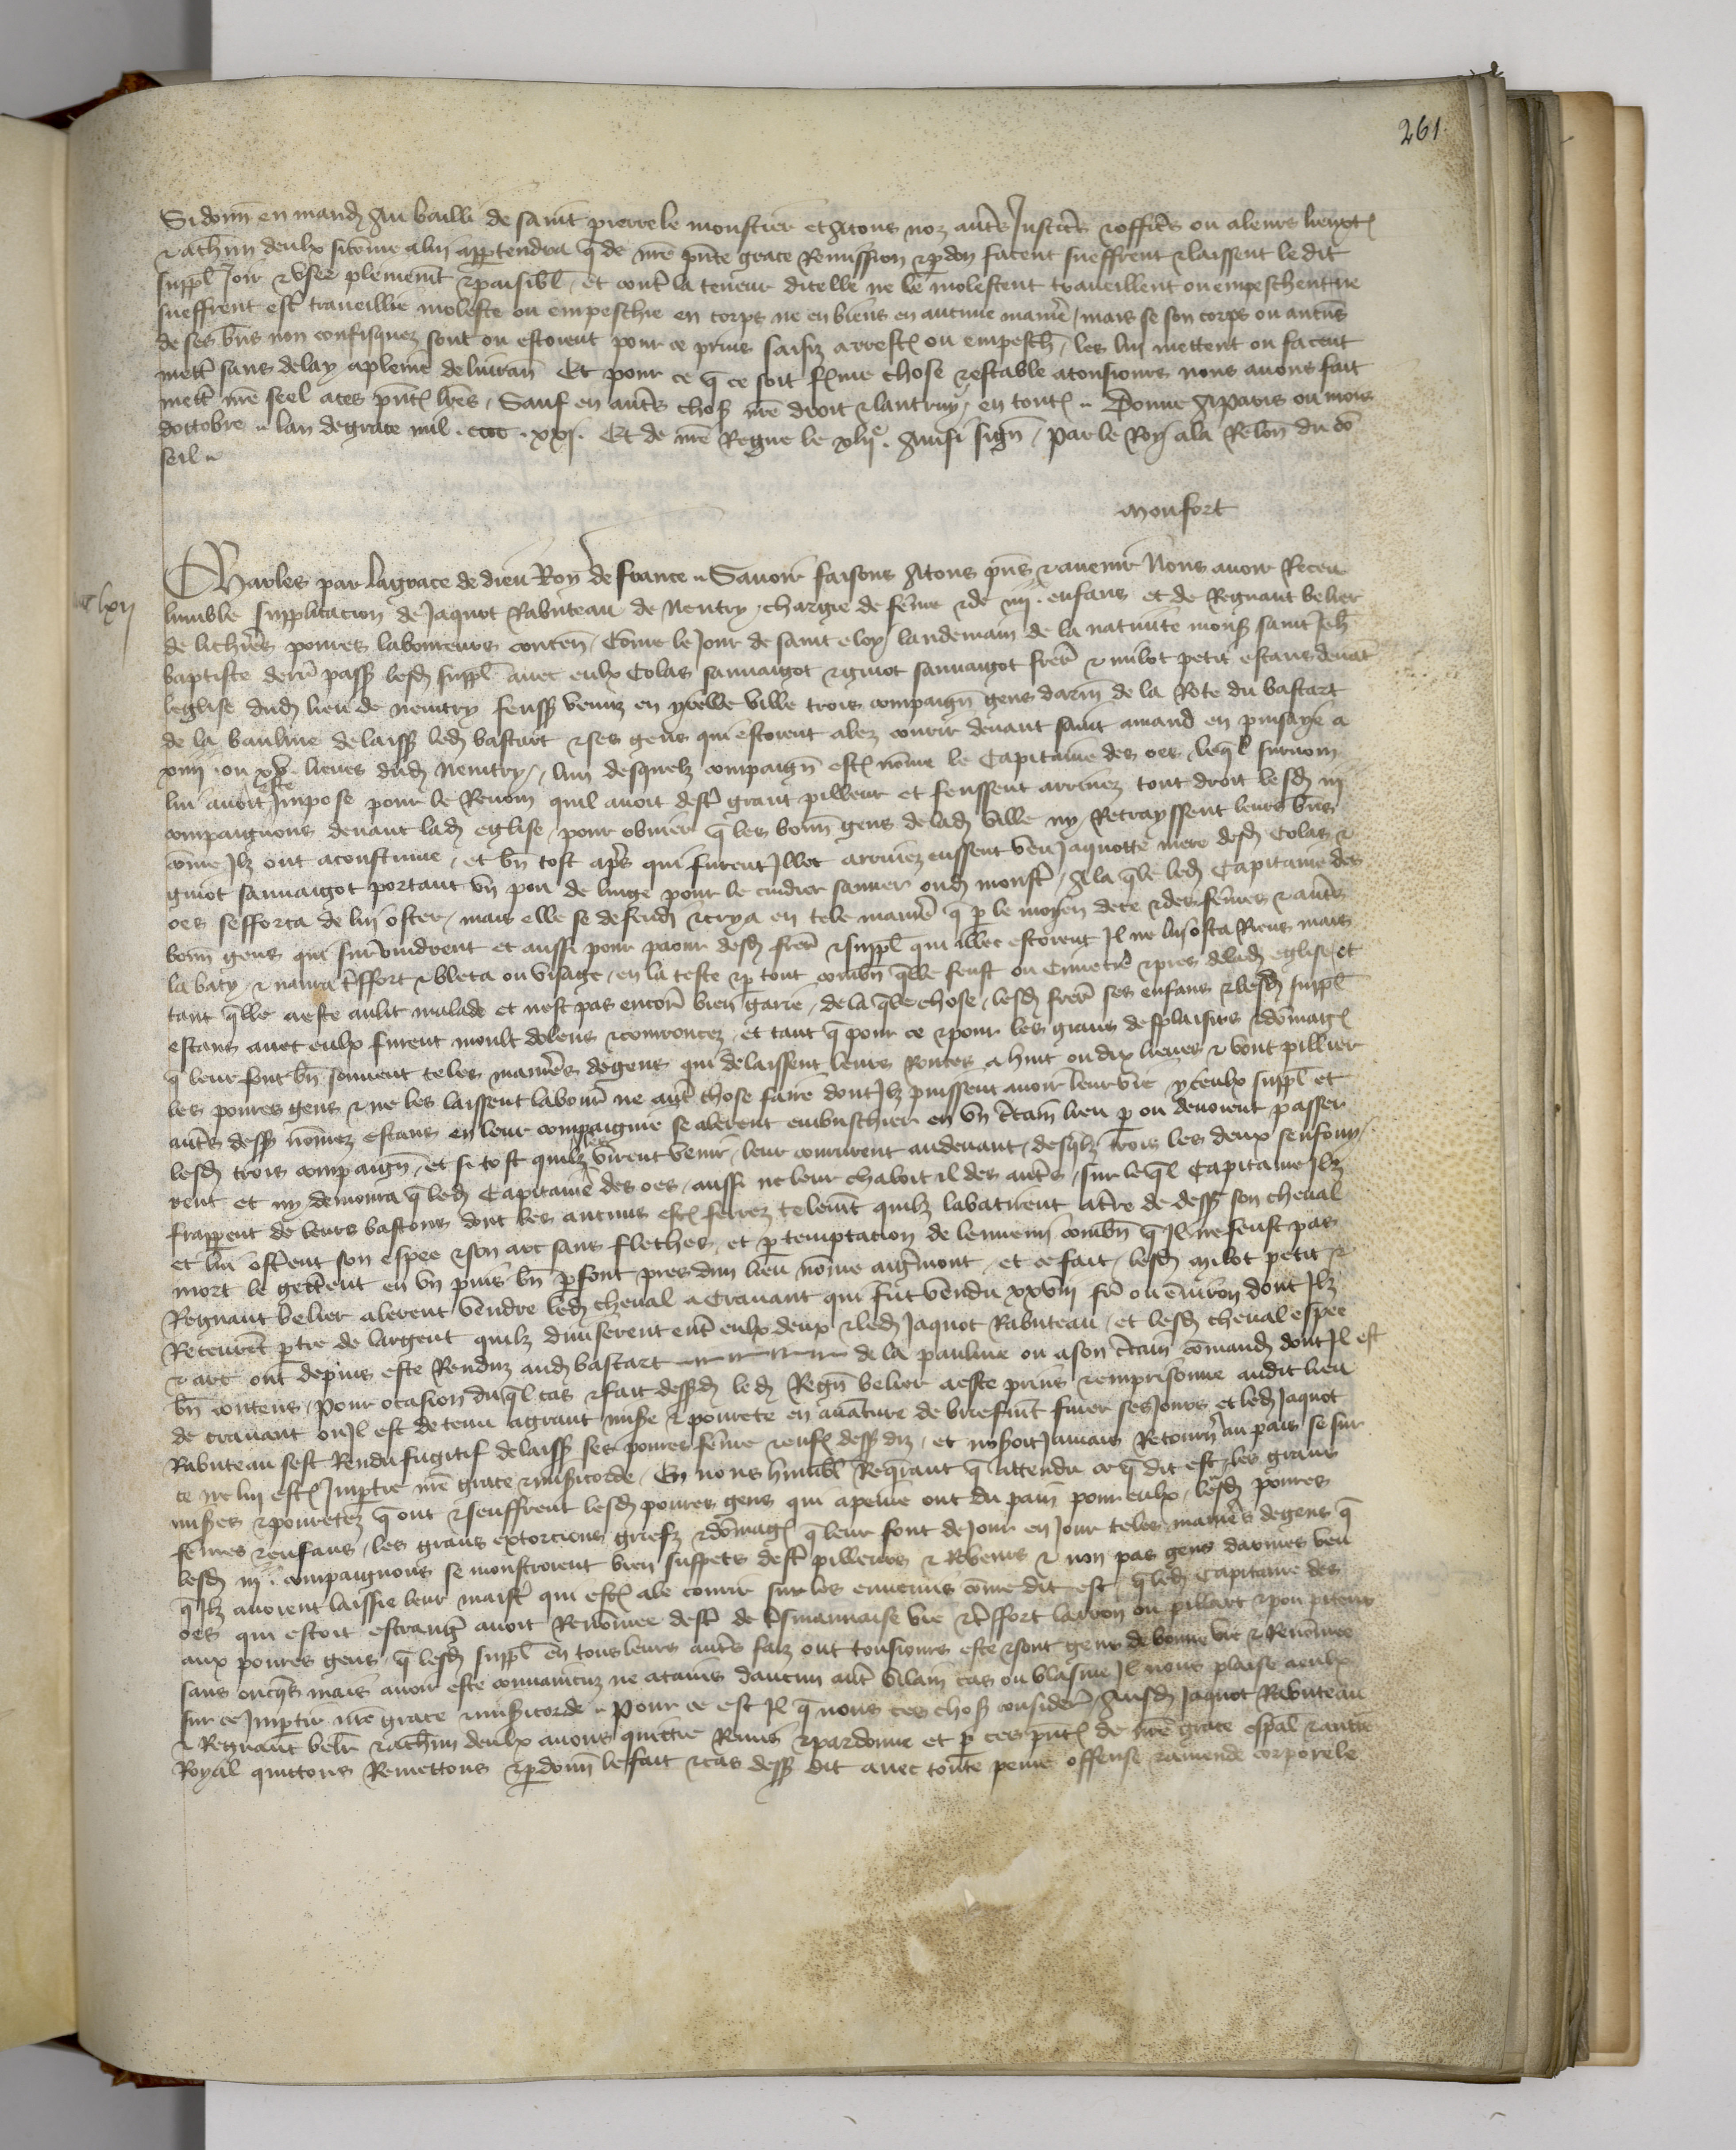 261
Si donn en mand au bailli de saint pierre le moustier et a tous noz autrs Justicrs & officrs ou a leurs lieuxten
& a chun deulx si come a lui appartendra q de nre pnte grace Remission & pdon facent sueffrent & laissent le dit
suppl Joir & user plement & paisibl, et contr la teneur dicelle ne le molestent traveillent ou empeschent ne
sueffrent estr traveillie moleste ou empeschie en corps ne en biens en aucune manier, mais se son corps ou aucuns
de ses bns non confisquez sont ou estoient pour ce prins saisiz arrestez ou empesch, les lui mettent ou facent
mettr sans delay a pleine delivran Et pour ce q ce soit ferme chose & estable a tousiours nous avons fait
mettr nre seel a ces pntes lres, Sauf en autrs choses nre droit & lautruy en toutes. Donne A Paris ou mois
doctobre. lan de grace mil. cccc. xxj. Et de nre Regne le xlije. Ainsi sign, Par le Roy a la Relon du con
seil.
Monfort
lxij
Charles par la grace de dieu Roy de france. Savoir faisons A tous pns & avenir Nous avoir Receu
lumble supplicacion de Jaquot Rabuteau de Neutry, chargie de feme & de iiij. enfans et de Regnaut belier
de lichers povres laboureurs conten, Come le Jour de saint eloy landemain de la nativite mons saint Jeh
baptiste derr pass lesd suppl avec eulx Colas sauvaigot & guiot sauvaigot frers & milot petit estans devant
leglise dud lieu de neutry feuss venuz en ycelle ville trois compaign gens darm de la Rote du bastart
de la bauline delaiss led bastart & ses gens qui estoient alez courir devant saint amand en puisaye a
xiiij. ou xv. lieues dud Neutry, lun desquelz compaign est nome le Capitaine des oes, leql surnom
lui avoit este Impose pour le Renom quil avoit destr grant pilleur et feussent arrivez tout droit lesd iij
compaignons devant lad eglise, pour obvier q les bonn gens de lad ville ny Retrayssent leurs bns
come Jlz ont acoustume, et bn tost aprs qui furent Jllec arrivez eussent veu Jaquotte mere desd Colas &
guiot sauvaigot portant un pou de linge pour le cuidier sauver oud moustr, A la qle led Capitaine des
oes sefforca de lui oster, mais elle se defend & crya en tele manier q p le moyen dece & des femes & autrs
bonn gens qui survindrent et aussi pour paour desd frers & suppl qui illec estoient Jl ne luy osta Riens mais
la baty, & navra trffort & bleca ou visage, en la teste & p tout combn qlle feust ou Cimetre & pres de lad eglise, et
tant qlle a este au lit malade et nest pas encor bien garie, de la qle chose, lesd frers ses enfans & lesd suppl
estans avec eulx furent moult dolens & courroucez, et tant q pour ce & pour les grans desplaisirs & domages
q leur font bn souvent teles maniers de gens qui delaissent leurs Routes a huit ou dix lieues & vont pillier
les povres gens & ne les laissent labour ne autr chose faire dont Jlz puissent avoir leur vie, yceulx suppl et
autrs dess nomez estans en leur compaignie se alerent embuschier en un crtain lieu p ou devoient passer
lesd trois compaign, et si tost quilz les virent venir, leur coururent audevant, desqlz trois les deux senfouy
rent et ny demoura q led Capitaine des oes, aussi ne leur chaloit il des autrs, sur leql Capitaine Jlz
frapperent de leurs bastons dont les aucuns est ferrez telemt quilz labatirent a terre de dess son cheval
et lui osterent son espee & son arc sans fleches, et p temptacion de lennemi combn q Jl ne feust pas
mort le getterent en un puis bn pfont pres dun lieu nome aigrmont, et ce fait, lesd milot petit &
Regnaut belier alerent vendre led cheval a Cravant qui fut vendu xxviij fr ou environ dont Jlz
Recevrent ptie de largent quilz diviserent entr eulx deux & led Jaquot Rabuteau, et lesd cheval espee
& arc ont depuis este Renduz aud bastart de la pauline ou a son crtain comand dont Jl est
bn contens, Pour ocasion duql cas & fait dessd led Regn belier a este prins & emprisonne audit lieu
de cravant ou Jl est detenu a grant misere & povrete en avature de briefmt finer ses Jours et led Jaquot
Rabuteau sest Rendu fugitif delaiss ses povres feme & enf dess diz, et noseroit Jamais Retourn au pais se sur
ce ne lui est Jmptie nre grace & misericorde, En nous humbl Requerant q attendu ce q dit est, les grans
miseres & povretez q ont & seuffrent lesd povres gens qui a peine ont du pain pour eulx, leursd povres
femes & enfans, les grans extorcions griefz & domages q leur font de Jour en Jour teles maniers de gens q
lesd iij. compaignons se monstroient bien suspets destr pilleurs & Robeurs & non pas gens darmes veu
q Jlz avoient laissie leur maistr qui est ale courir sur les ennemis come dit est q led Capitaine des
oes qui estoit estrangr avoit Renomee destr de trsmauvaise vie & trffort larron ou pillart & pou piteux
aux povres gens, q lesd suppl en tous leurs autrs faiz ont tousiours este & sont gens de bonne vie & Renomee
sans oncqs mais avoir este convaincuz ne atains daucun autr vilain cas ou blasme Jl nous plaise a eulx
sur ce Jmptir nre grace & misericorde. Pour ce est Jl q nous ces choses consider, Ausd Jaquot Rabuteau
& Regnaut belr & a chun deulx avons quictie Remis & pardonne et p ces pntes de nre grace espal & auctte
Royal quittons Remettons & pdonn le fait & cas dess dit avec toute peine offense & amende corporele